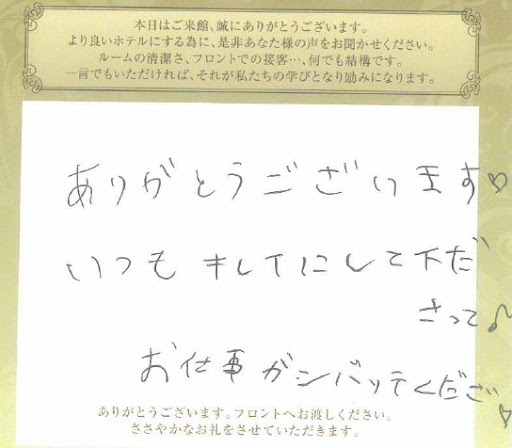 本日はご来館、誠にありがとうございます。
より良いホテルにする為に、是非あなた様の声をお聞かせください。
ルームの清潔さ、フロントでの接客…、何でも結構です。
一言でもいただければ、それが私たちの学びとなり励みになります。
ありがとうございます♡
いつも キレイにして下だ
さって♪
お仕事ガンバッテくださ
ありがとうございます。フロントへお渡しください。
ささやかなお礼をさせていただきます。